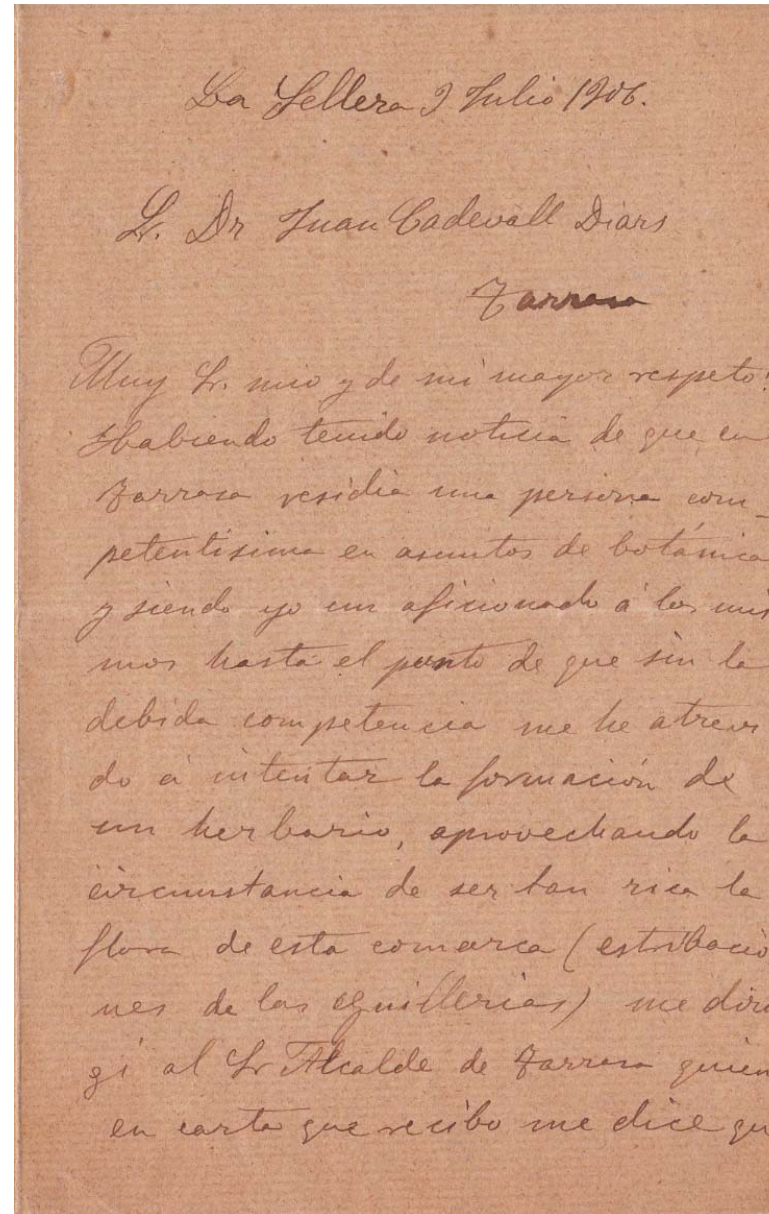 La Sellera 9 Julio 1906.
S. Dr Juan Cadevall Diars
Tarrasa
Muy Sr. mio y de mi mayor respeto:
Habiendo tenido noticia de que en
Tarrasa residia una persona com-
petentisima en asuntos de botánica
y siendo yo un aficionado á los mis
mos hasta el punto de que sin la
debida competencia me he atrevi
do á intentar la formación de
un herbario, aprovechando la
circunstancia de ser tan rica la
flora de esta comarca (estribacio
nes de las Guillerias) me diri
gí al Sr Alcalde de Tarrasa quien
en carta que recibo me dice qu